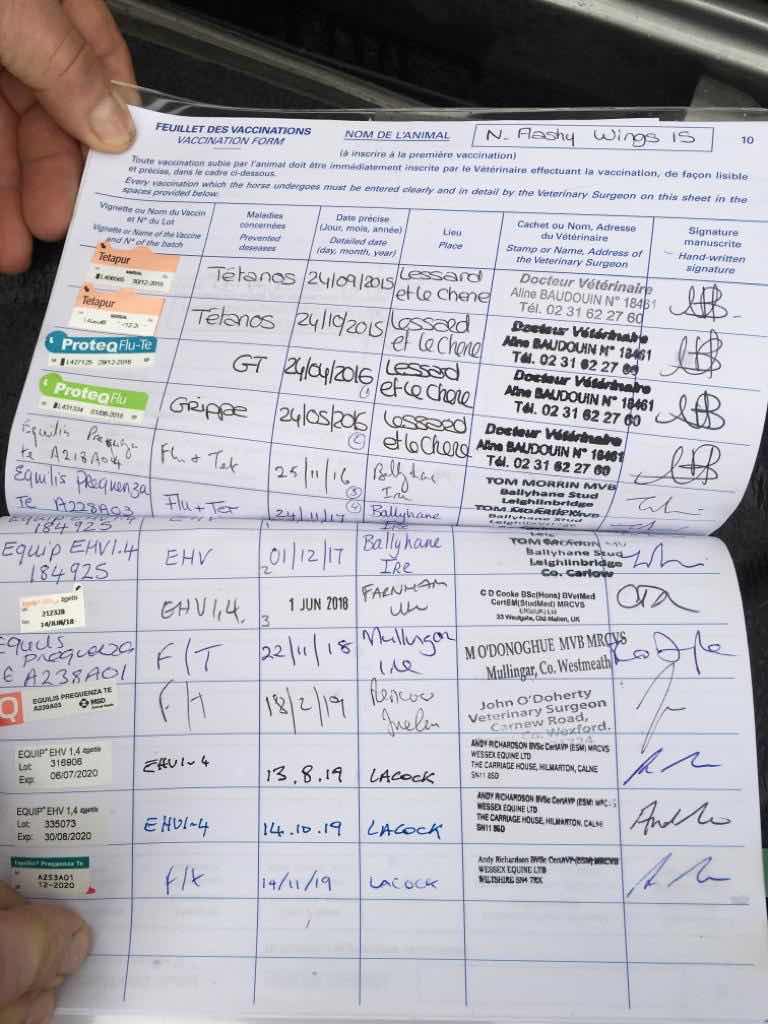 FEUILLET DES VACCINATIONS
VACCINATION FORM
NOM DE L'ANIMAL
N. Flashy Wings IS
10
(à inscrire à la première vaccination)
Toute vaccination subie par l'animal doit être immédiatement inscrite par le Vétérinaire effectuant la vaccination, de façon lisible
et précise, dans le cadre ci-dessous.
Every vaccination which the horse undergoes must be entered clearly and in detail by the Veterinary Surgeon on this sheet in the
spaces provided below.
Vignette ou Nom du Vaccin
et N° du Lot
Vignette or Name of the Vaccine
and N° of the batch
Maladies
concernées
Prevented
deseases
Date précise
(Jour, mois, année)
Detailed date
(day, month, year)
Lieu
Place
Cachet ou Nom, Adresse
du Vétérinaire
Stamp or Name, Address of
the Veterinary Surgeon
Signature
manuscrite
Hand-written
signature
Tetapur
30/12/2016
Tétanos
24/09/2015
Lessard
et le Chene
Docteur Vétérinaire
Aline BAUDOUIN N° 18461
Tél. 02 31 62 27 60
Tetapur
Tétanos
24/10/2015
Lessard
et le Chene
Docteur Vétérinaire
Aline BAUDOUIN N° 18461
Tél. 02 31 62 27 60
ProteqFlu-Te
L427125 29/12/2016
GT
24/04/2016
1
Lessard
et le Chene
Docteur Vétérinaire
Aline BAUDOUIN N° 18461
Tél. 02 31 62 27 60
ProteqFlu
L431334
Grippe
24/05/2016
2
Lessard
et le Chene
Docteur Vétérinaire
Aline BAUDOUIN N° 18461
Tél. 02 31 62 27 60
Equilis Prequenza
te A218A04
Flu + Tet
25/11/16
3
Ballyhane
Ire
TOM MORRIN MVB
Ballyhane Stud
Leighlinbridge
Equilis Prequenza
Te A228A03
Flu + Tet
24/11/17
4
Ballyhane
Ire
TOM MORRIN MVB
Ballyhane Stud
Leighlinbridge
184925
Equip EHV1.4
184925
EHV
01/12/17
2
Ballyhane
IRE
Ballyhane Stud
Leighlinbridge
Co. Carlow
212328
14/JUN/18
EHV1,4.
1 JUN 2018
3
FARNHAM
C D Cooke BSc(Hons) BVetMed
CertEM(StudMed) MRCVS
33 Westgate, Old Malton, UK
Equilis
prequenza
E A238A01
F/T
22/11/18
Mullingar
Ire
M O'DONOGHUE MVB MRCVS
Mullingar, Co. Westmeath
EQUILIS PREQUENZA TE
A239A03
MSD
18/2/19
John O'Doherty
Veterinary Surgeon
Carnew Road,
Co. Wexford.
EQUIP EHV 1,4 zoetis
Lot: 316906
Exp: 06/07/2020
EHV1-4
13.8.19
LACOCK
ANDY RICHARDSON BVSc CertAVP (ESM) MRCVS
WESSEX EQUINE LTD
THE CARRIAGE HOUSE, HILMARTON, CALNE
SN11 8SD
EQUIP EHV 1,4 zoetis
Lot: 335073
Exp: 30/08/2020
EHV1-4
14.10.19
LACOCK
ANDY RICHARDSON BVSc CertAVP (ESM) MRCVS
WESSEX EQUINE LTD
THE CARRIAGE HOUSE, HILMARTON, CALNE
SN11 8SD
Equilis Prequenza Te
A253A01
12-2020
F/t
14/11/19
LACOCK
Andy Richardson BVSc CertAVP(ESM) MRCVS
WESSEX EQUINE LTD
WILTSHIRE SN4 7RX